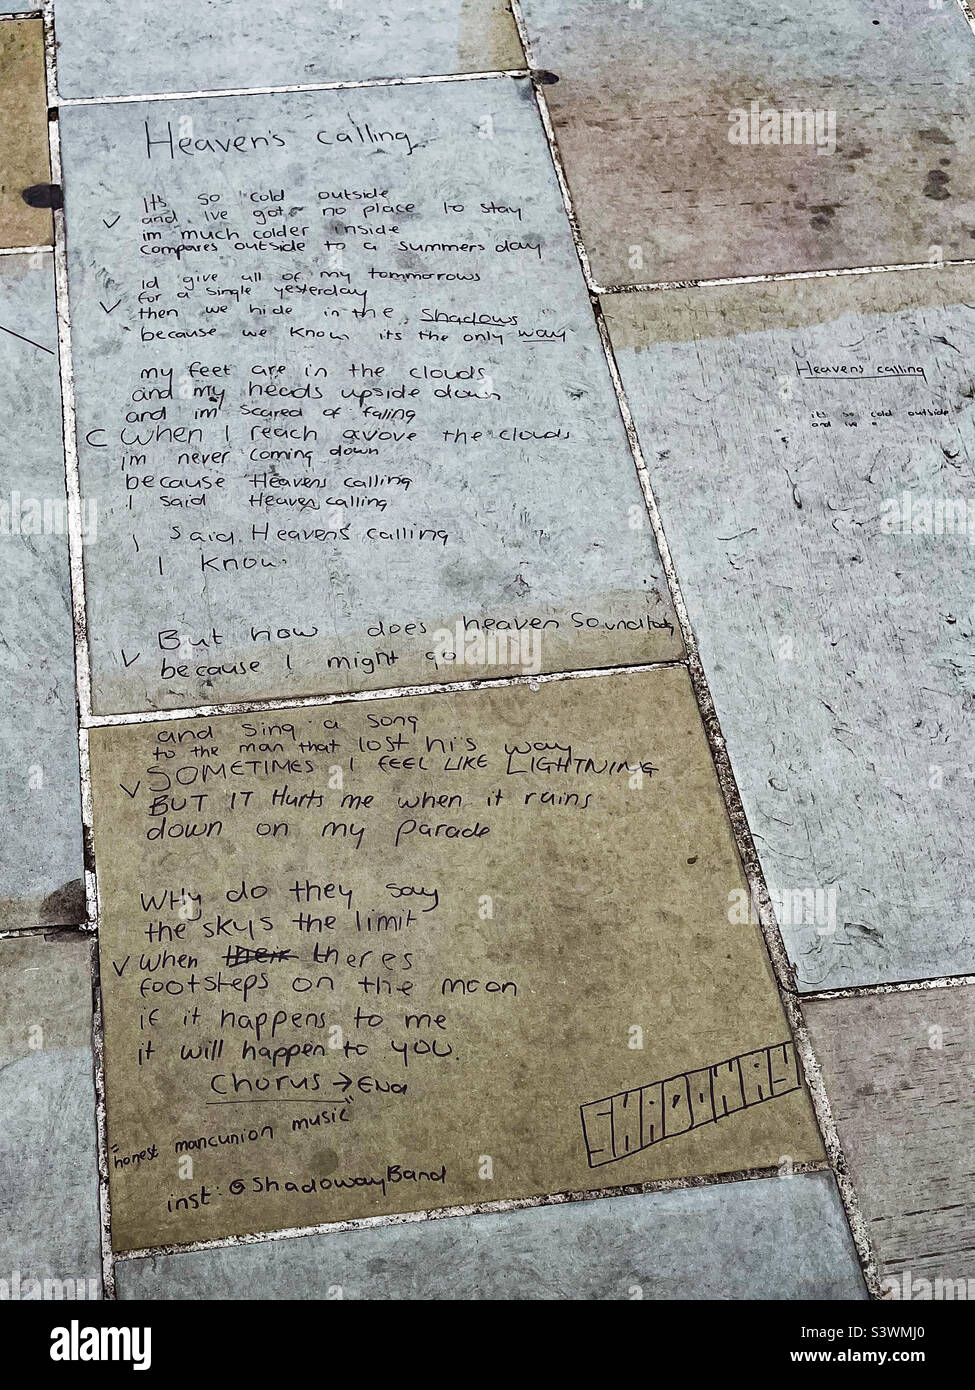 Heaven's calling
Its so cold outside
V and ive got no place to stay
im much colder inside
compares outside to a summers day
Id give all of my tommorrows
for a single yesterday
V then we hide in the shadows
because we know its the only way
my feet are in the clouds
and my heads upside down
and im scared of falling
C when I reach avove the clouds
im never coming down
because Heavens calling
I said Heavens calling
I said Heavens calling
I know.
But how does heaven sound
V because I might go
and sing a song
to the man that lost his way
V SOMETIMES I FEEL LIKE LIGHTNING
BUT IT Hurts me when it rains
down on my parade
WHy do they say
the skys the limit
V when their theres
footsteps on the moon
if it happens to me
it will happen to you.
Chorus → End
"honest mancunion music"
SHADOWAY
inst: @ShadowayBand
Heavens calling
its so cold outside
and ive
alamy
Image ID: S3WMJ0
www.alamy.com